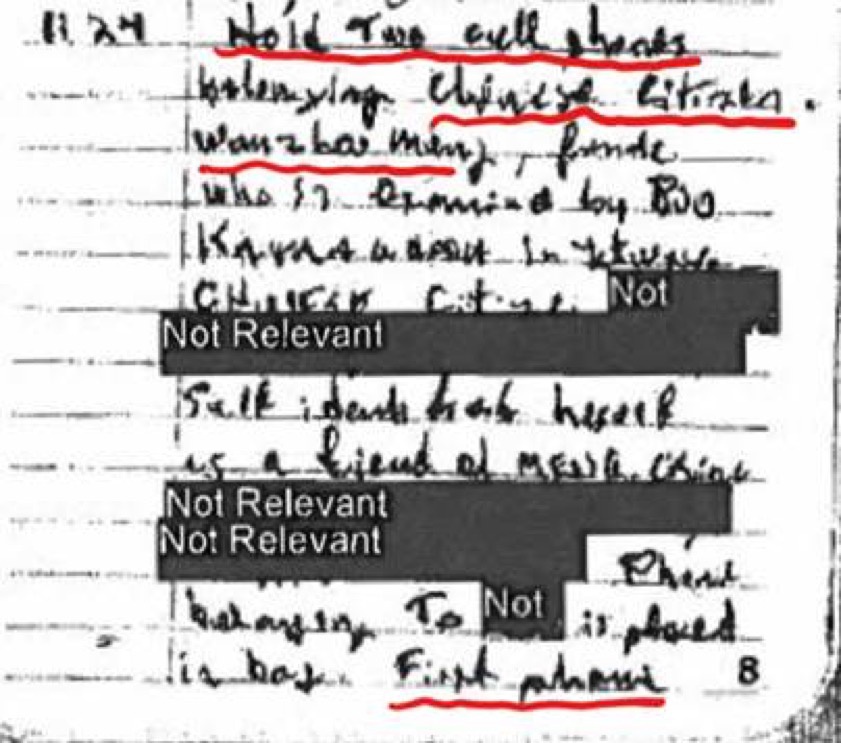 11:24 Hold Two cell phones
belonging Chinese Citizen.
Wanzhou Meng,
who is Examined by BSO
Not
Not Relevant
Self identif herself
is a friend of MENG.
Not Relevant
Not Relevant
Phone
belonging To Not is placed
in bag. First phone 8